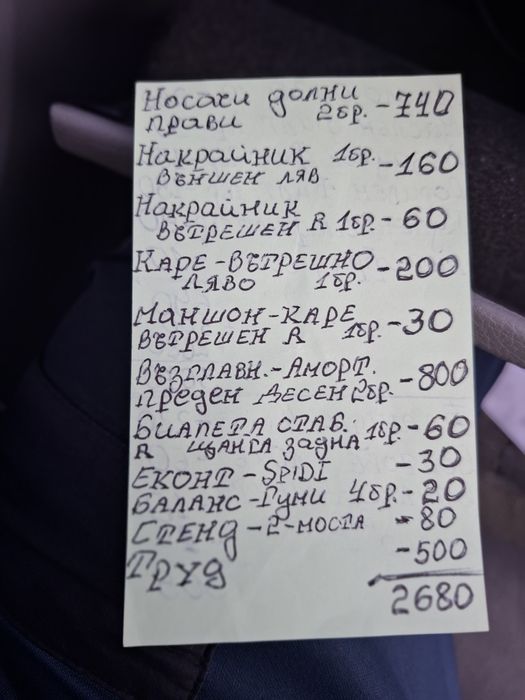 Носачи долни 2бр. - 740
прави
Накрайник 1бр. - 160
Външен ляв
Накрайник
Вътрешен R 1бр. - 60
Каре - Вътрешно - 200
ляво 1бр.
Маншон - Каре
Вътрешен R 1бр. - 30
Възглавн. - Аморт.
преден десен 2бр. - 800
Биалета стаб. 1бр. - 60
R щанга задна
Еконт - SPIDI - 30
Баланс - Гуми 4бр. - 20
Стенд - 2 - моста - 80
Труд - 500
2680